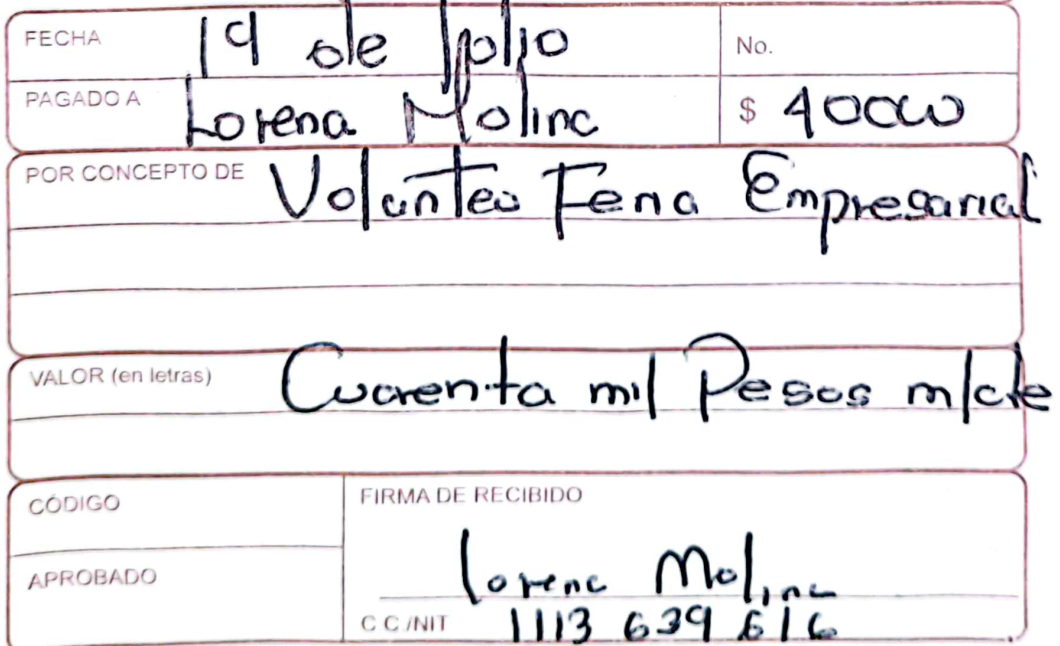 FECHA 19 de Julio No.
PAGADO A Lorena Molina $ 40000
POR CONCEPTO DE Volanteo Feria Empresarial
VALOR (en letras) Cuarenta mil Pesos m/cte
CÓDIGO FIRMA DE RECIBIDO
APROBADO Lorena Molina
C C /NIT 1113 639 616